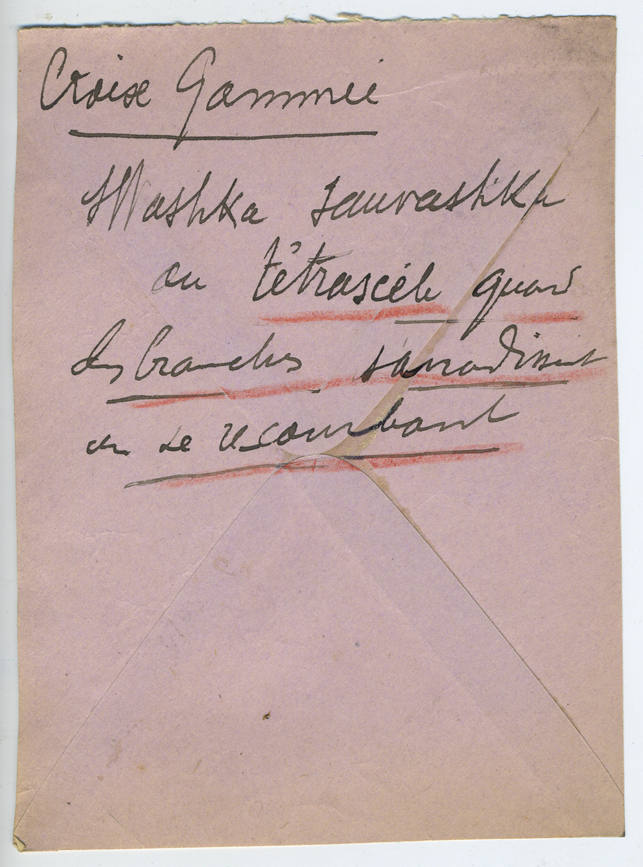 Croix Gammée
Swashka Sauvashka
ou tétrascèle quand
les branches s'arrondissent
en se recourbant